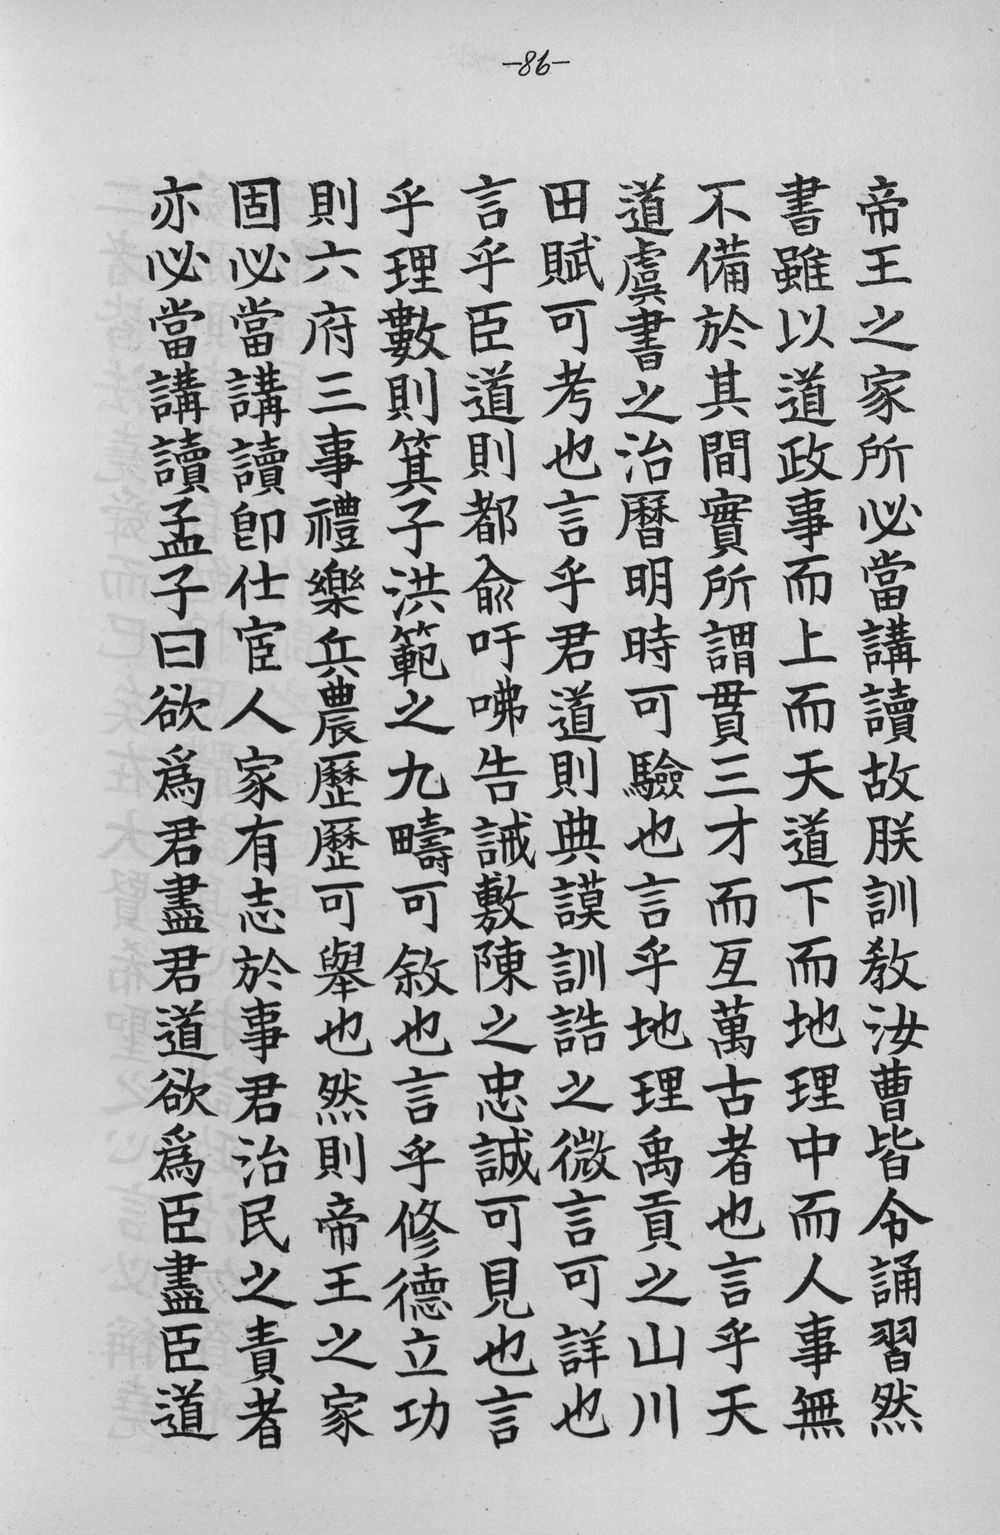 -86-
帝王之家所必當講讀故朕訓敎汝曹皆令誦習然
書雖以道政事而上而天道下而地理中而人事無
不備於其間實所謂貫三才而亙萬古者也言乎天
道虞書之治曆明時可驗也言乎地理禹貢之山川
田賦可考也言乎君道則典謨訓誥之微言可詳也
言乎臣道則都兪吁咈告誡敷陳之忠誠可見也言
乎理數則箕子洪範之九疇可敘也言乎修德立功
則六府三事禮樂兵農歷歷可舉也然則帝王之家
固必當講讀卽仕宦人家有志於事君治民之責者
亦必當講讀孟子曰欲爲君盡君道欲爲臣盡臣道